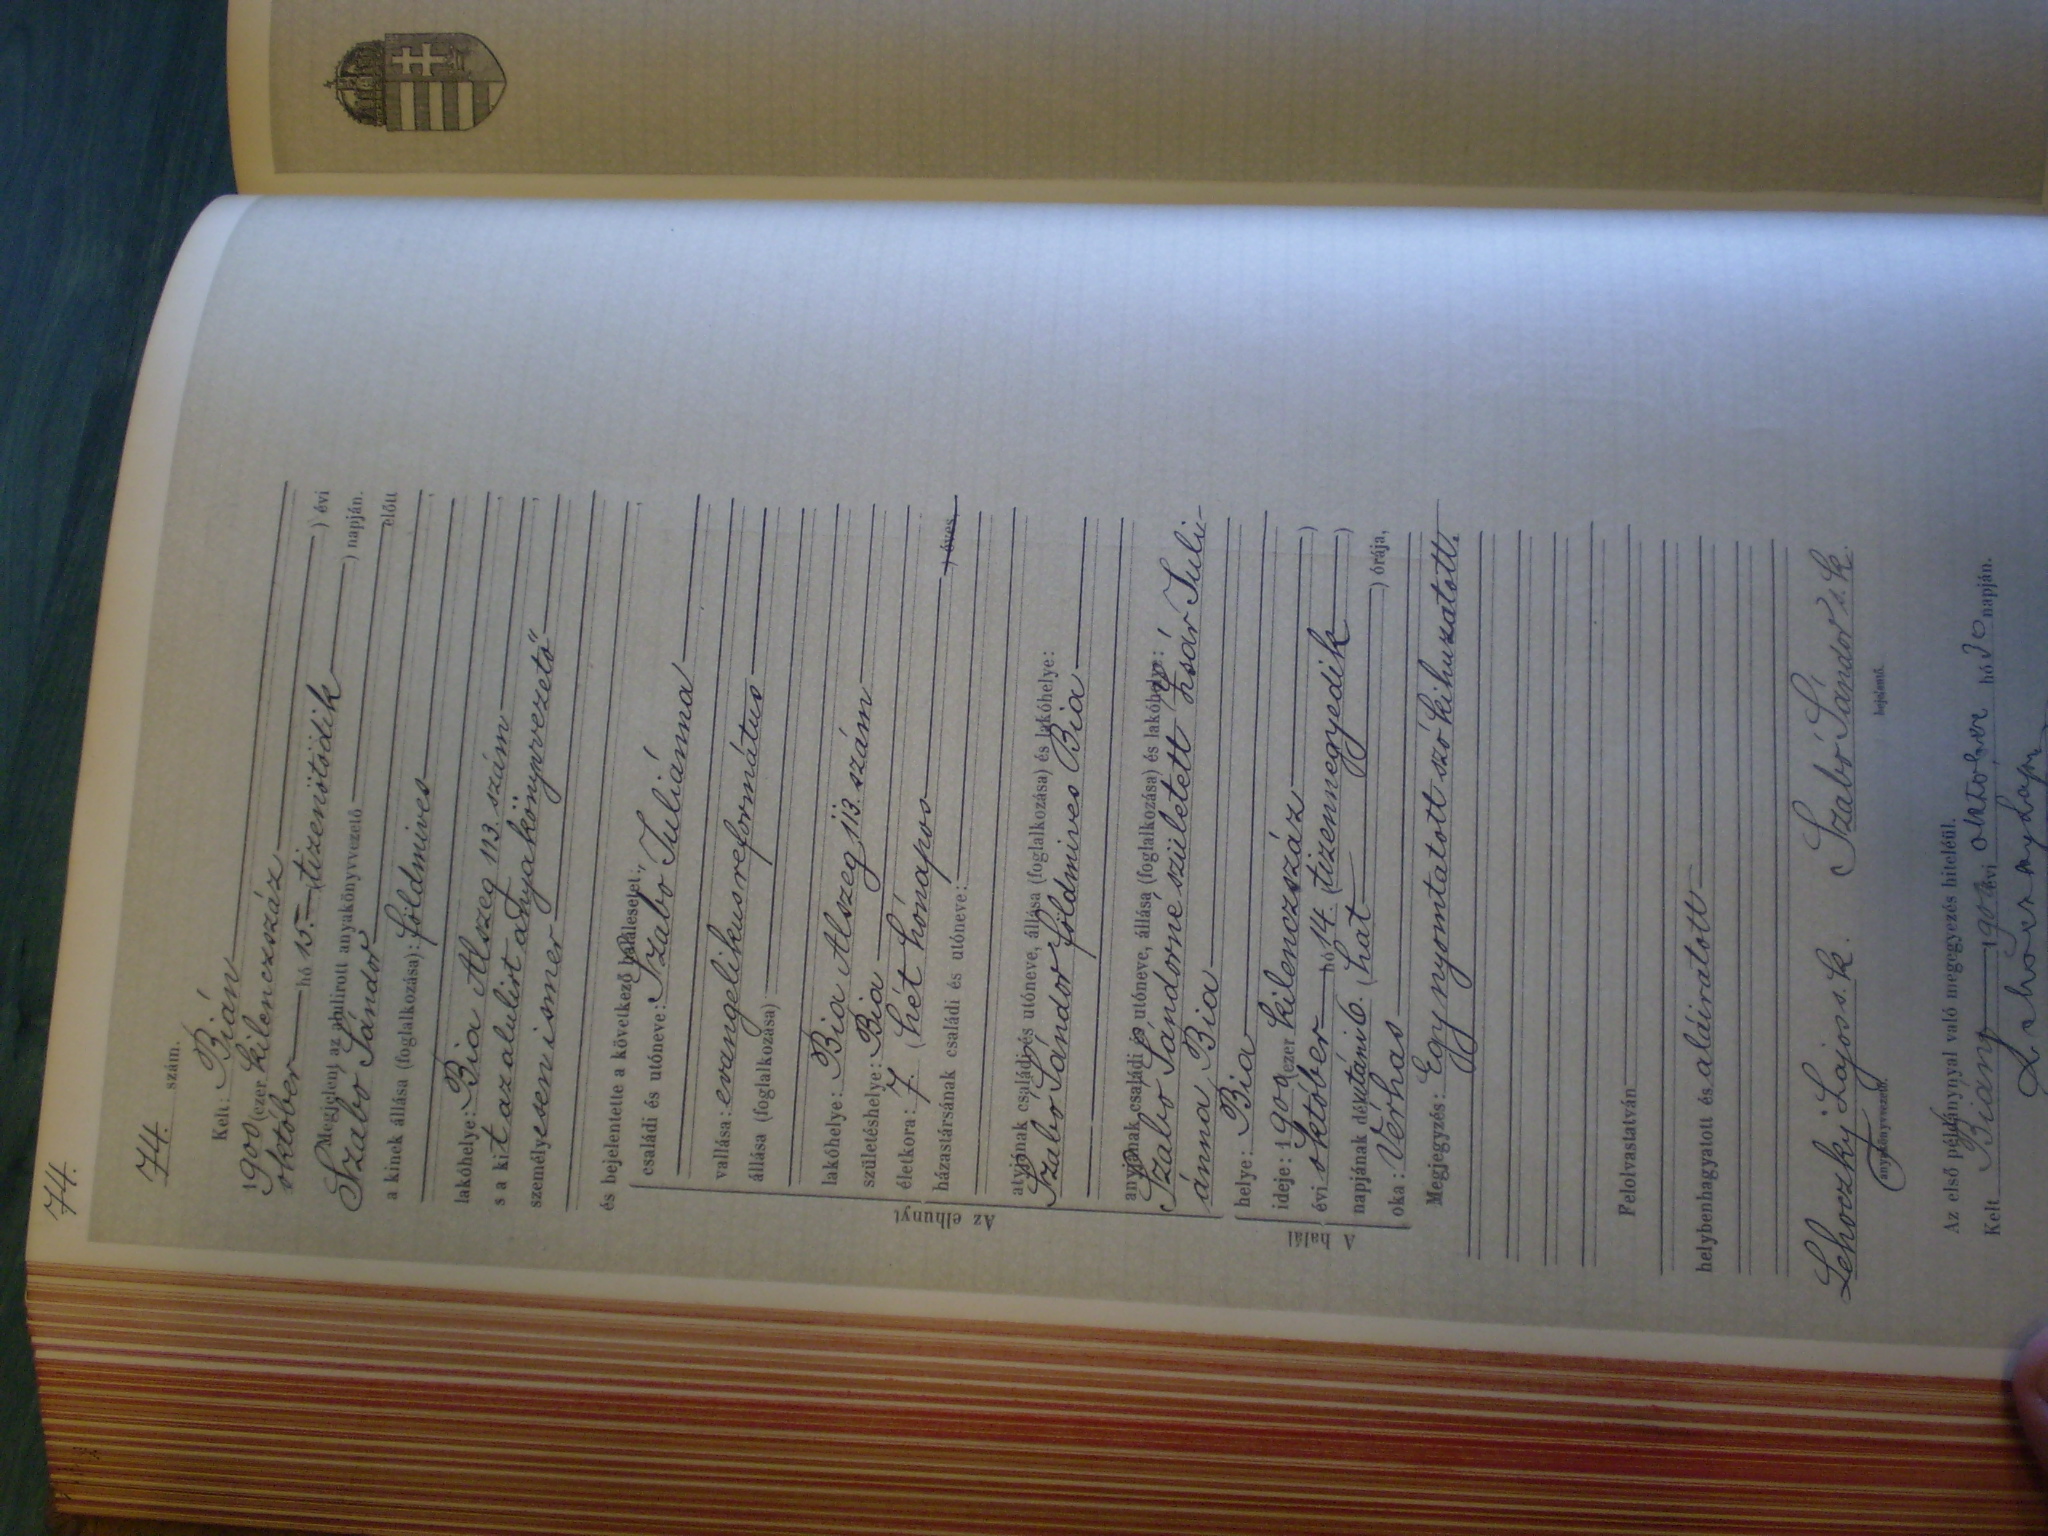 74.
74. szám.
Kelt: Bián
1900 (ezer kilenczszáz ) évi
október hó 15. (tizenötödik ) napján.
Megjelent az alulirott anyakönyvvezető előtt
Szabó Sándor
a kinek állása (foglalkozása): földmives
lakóhelye: Bia Alszeg 113. szám,
s a kit az alulirt anyakönyvvezető
személyesen ismer
és bejelentette a következő halálesetet:
családi és utóneve: Szabó Juliánna
vallása: evangelikus református
állása (foglalkozása)
lakóhelye: Bia Alszeg 113. szám
születéshelye: Bia
életkora: 7. (hét hónapos ) éves,
házastársának családi és utóneve:
Az elhunyt
atyjának családi és utóneve, állása (foglalkozása) és lakóhelye:
Szabó Sándor földmives Bia
anyjának családi és utóneve, állása (foglalkozása) és lakóhelye:
Szabó Sándorné született Zsár Juli-
ánna Bia
helye: Bia
ideje: 1900 (ezer kilenczszáz )
évi október hó 14. (tizennegyedik )
napjának délutáni 6. (hat ) órája,
oka: Vérhas
A halál
Megjegyzés: Egy nyomtatott szó kihuzatott.
Felolvastatván
helybenhagyatott és aláiratott
Lehoczky Lajos s. k. Szabó Sándor s. k.
anyakönyvvezető. bejelentő.
Az első példánynyal való megegyezés hiteléül.
Kelt 1900 évi október hó 30 napján.